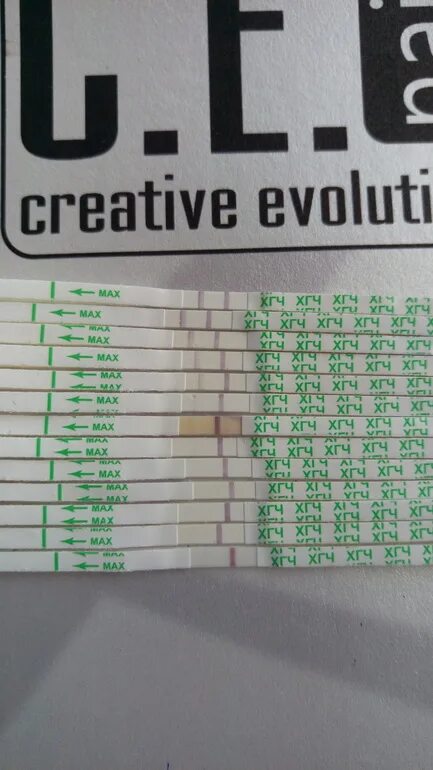 C.E.
pai
creative evoluti
MAX ХГЧ ХГЧ ХГЧ ХГЧ
MAX ХГЧ ХГЧ ХГЧ ХГЧ ХГЧ
MAX ХГЧ ХГЧ ХГЧ ХГЧ
MAX ХГЧ ХГЧ ХГЧ ХГЧ
MAX ХГЧ ХГЧ ХГЧ ХГЧ
MAX ХГЧ ХГЧ ХГЧ ХГЧ
MAX ХГЧ ХГЧ ХГЧ ХГЧ
MAX ХГЧ ХГЧ ХГЧ ХГЧ
MAX ХГЧ ХГЧ ХГЧ ХГЧ
MAX ХГЧ ХГЧ ХГЧ ХГЧ
MAX ХГЧ ХГЧ ХГЧ ХГЧ
MAX ХГЧ ХГЧ ХГЧ ХГЧ
MAX ХГЧ ХГЧ ХГЧ ХГЧ